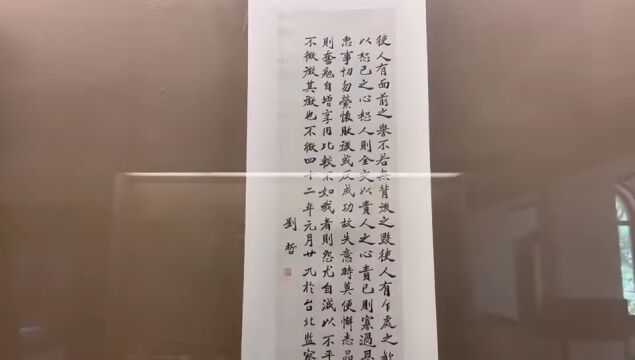 使人有面前之譽不若無背後之毀使人有乍處之
以恕己之心恕人則全交以責人之心責己則寡過
患事切勿縈懷敗後或反成功故失意時莫便懈志品
則奮勉自增享用比較不如我者則怨尤自滅以不平
不徵徵其徵也不徵四十二年元月廿九於台北監察
劉哲